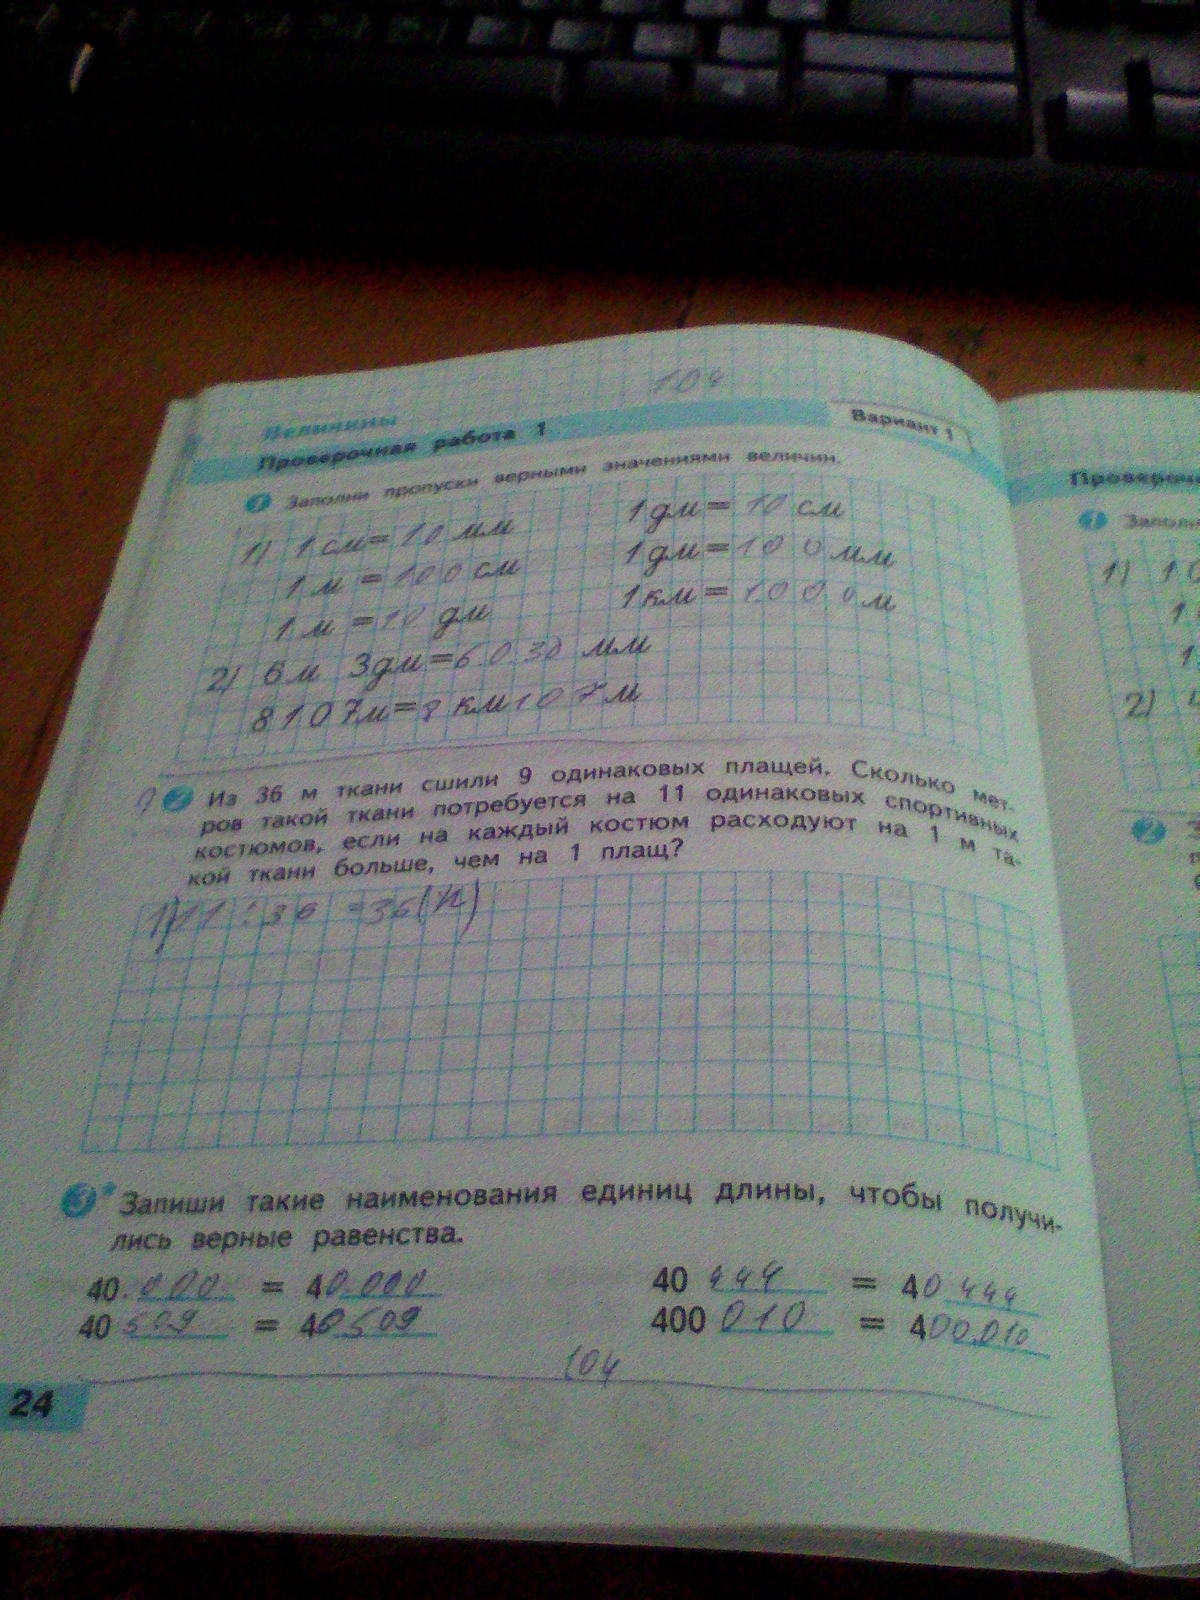 104
Величины
Проверочная работа 1
Вариант 1
1 Заполни пропуски верными значениями величин.
1) 1 см = 10 мм 1 дм = 10 см
1 м = 100 см 1 дм = 100 мм
1 м = 10 дм 1 км = 1000 м
2) 6 м 3 дм = 6030 мм
8107 м = 8 км 107 м
2 Из 36 м ткани сшили 9 одинаковых плащей. Сколько мет-
ров такой ткани потребуется на 11 одинаковых спортивных
костюмов, если на каждый костюм расходуют на 1 м та-
кой ткани больше, чем на 1 плащ?
1) 11 : 36 = 36 (К)
3* Запиши такие наименования единиц длины, чтобы получи-
лись верные равенства.
40.000 = 40.000 40 444 = 40 444
40 509 = 40 509 400 010 = 400.010
104
24
Провероч
1 Заполн
1) 1
1
1
2)
2